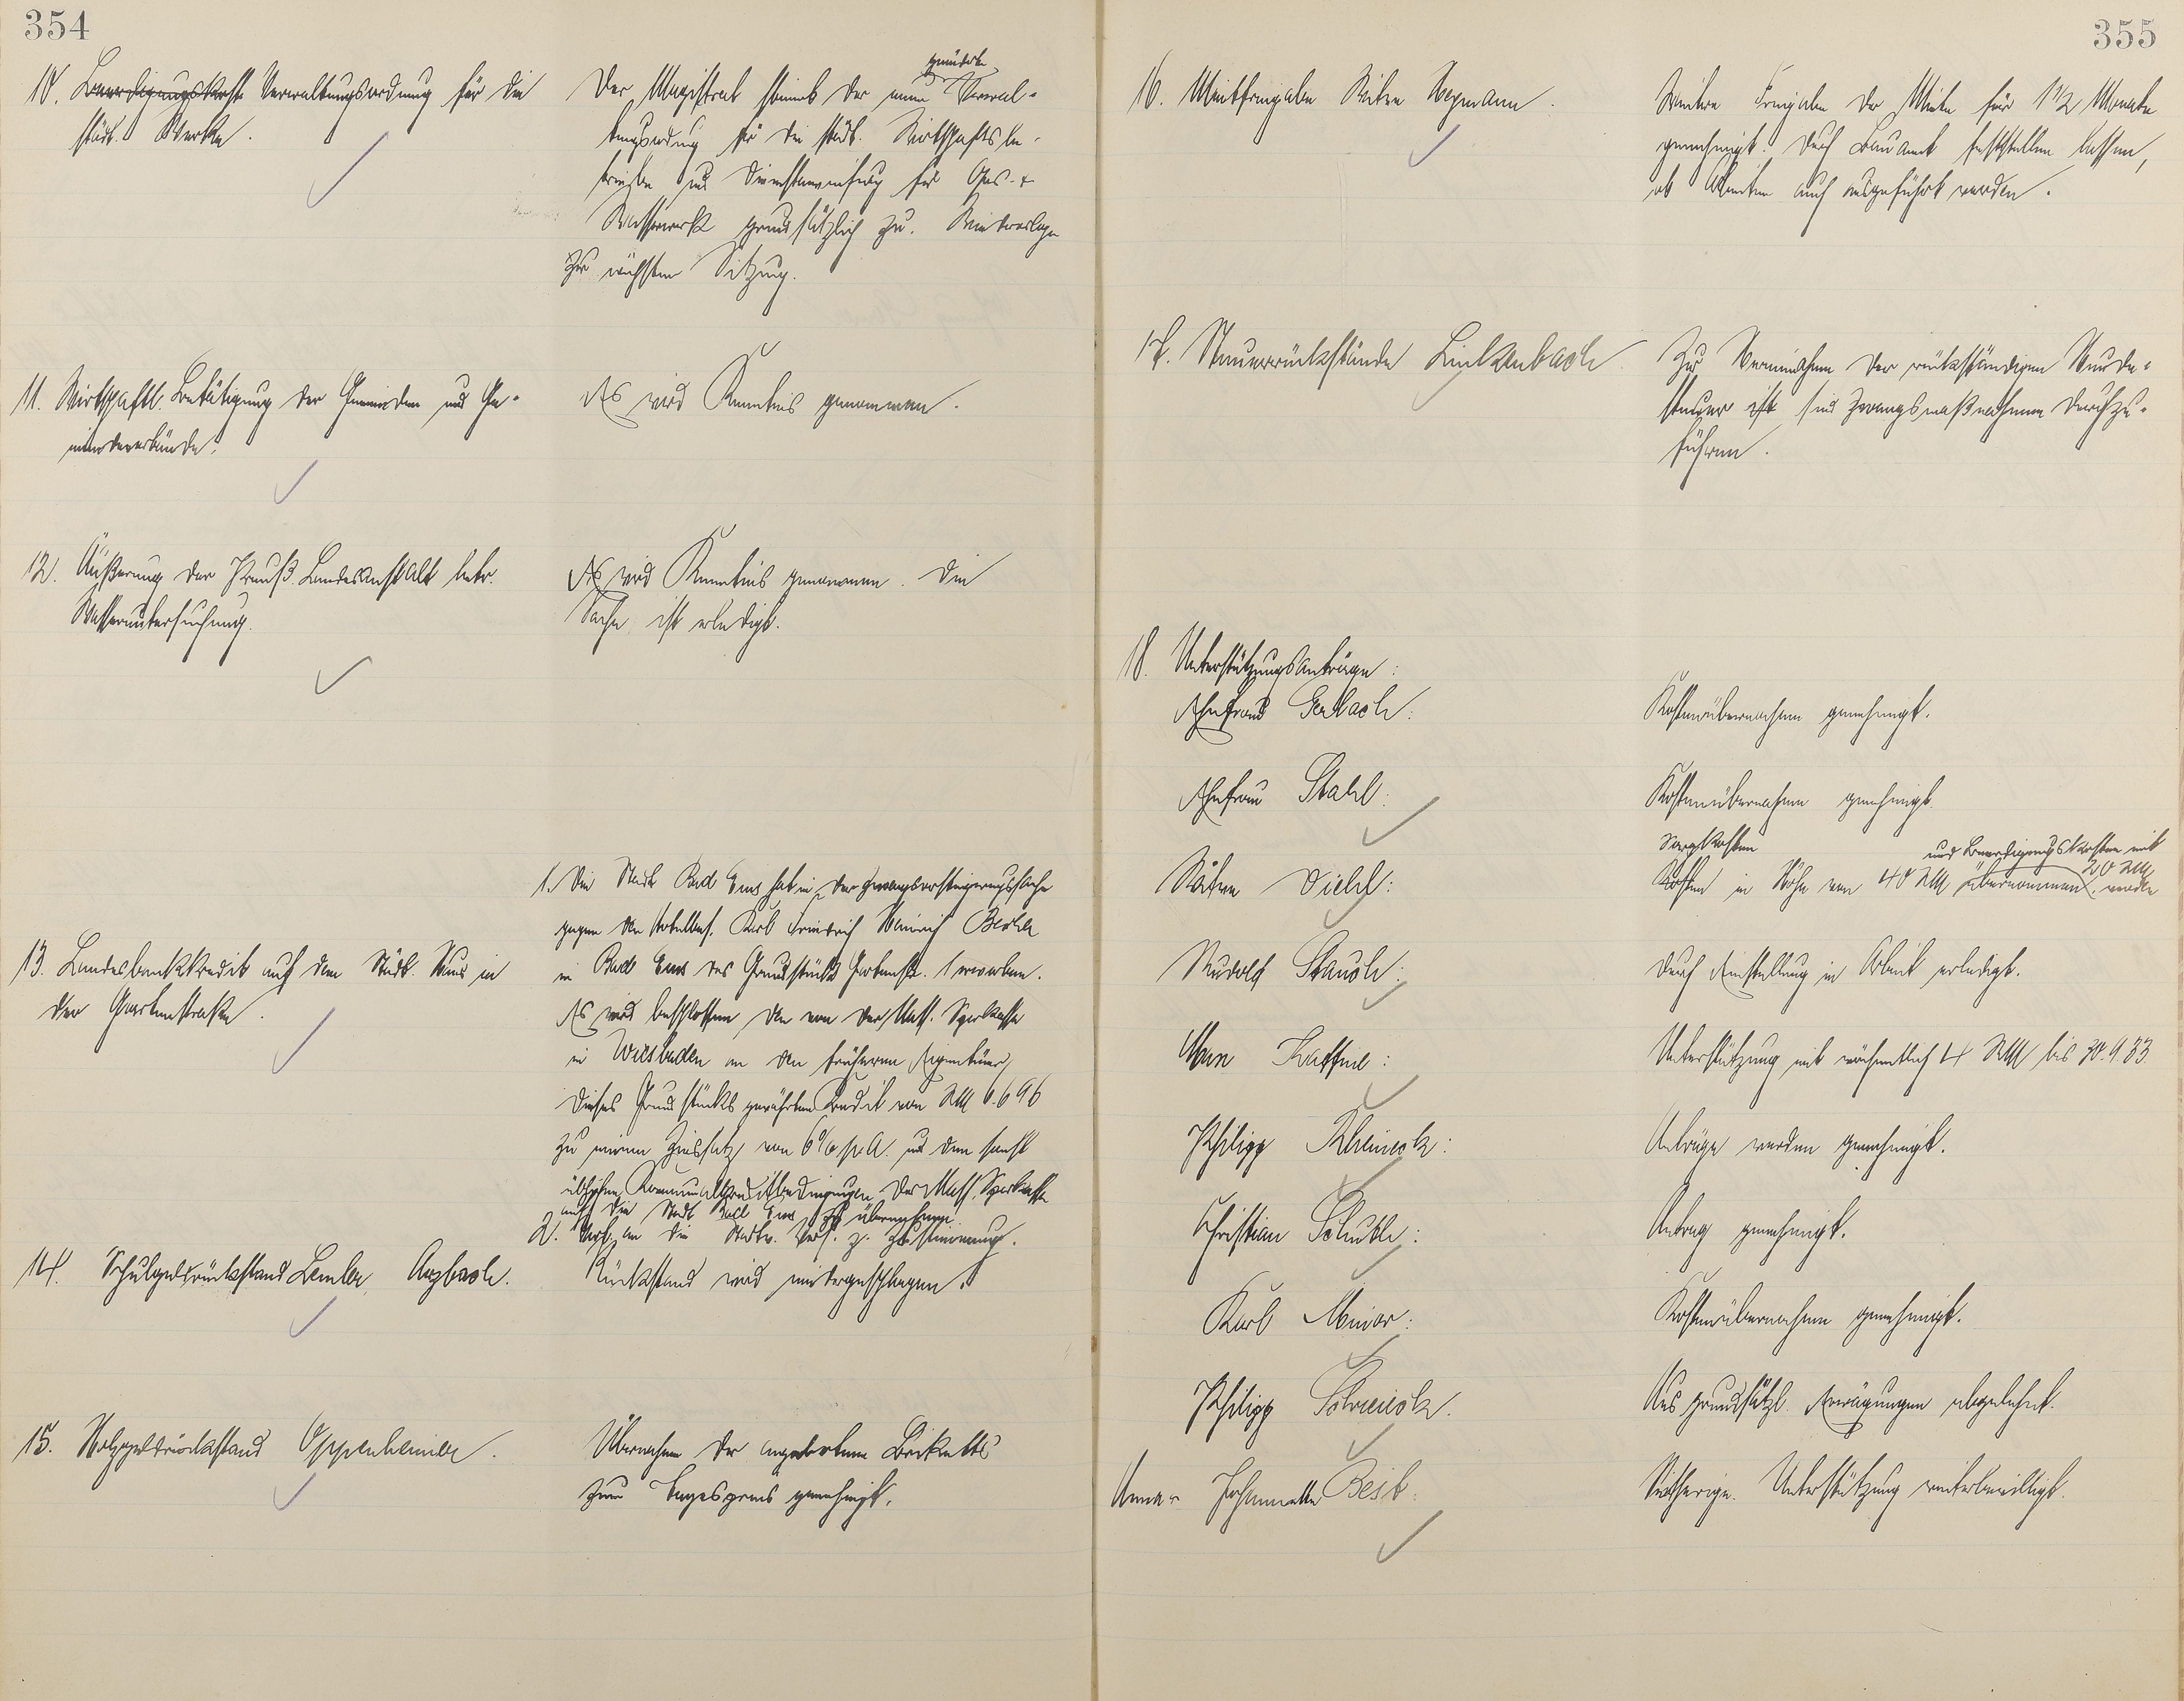 354
10. Beerdigungskosten Verwaltungsordnung für die
städt. Werke.
Der Magistrat stimmt der neuen geänderten Verwal-
tungsordnung für die städt. Wirtschaftsbe-
triebe und Dienstanweisung für Gas- &
Wasserwerk grundsätzlich zu. Wiedervorlage
zur nächsten Sitzung.
11. Wirtschaftl. Betätigung der Gemeinden und Ge-
meindeverbände.
Es wird Kenntnis genommen.
12. Äußerung der Preuß. Landesanstalt betr.
Wasseruntersuchung.
Es wird Kenntnis genommen. Die
Sache ist erledigt.
13. Landesbankkredit auf dem Städt. Haus in
der Gartenstraße.
1. Die Stadt Bad Ems hat in der Zwangsversteigerungssache
gegen den Hotelbes. Karl Friedrich Heinrich Becher
in Bad Ems das Grundstück Gartenstr. 1 erworben.
Es wird beschlossen den von der Nass. Sparkasse
in Wiesbaden an den früheren Eigentümer
dieses Grundstücks gewährten Kredit von RM 6.696
zu einem Zinssatz von 6% p.A. und den sonst
üblichen Kommunalkreditbedingungen der Nass. Sparkasse
auf die Stadt Bad Ems zu übernehmen.
2. Vorl. an die Stadtv. Vers. z. Zustimmung.
14. Schulgeldrückstand Lemler, Arzbach.
Rückstand wird niedergeschlagen.
15. Holzgeldrückstand Oppenheimer.
Übernahme der angebotenen Briketts
zum Tagespreis genehmigt.
355
16. Mietfreigabe Witwe Hermann.
Weitere Freigabe der Miete für 1 1/2 Monate
genehmigt. Durch Bauamt feststellen lassen,
ob Arbeiten auch ausgeführt werden.
17. Steuerrückstände Linkenbach
Zur Vereinnahme der rückständigen Hunde-
steuer ist sind Zwangsmaßnahmen durchzu-
führen.
18. Unterstützungsanträge:
Ehefrau Gerlach:
Kostenübernahme genehmigt.
Ehefrau Stahl:
Kostenübernahme genehmigt.
Witwe Diehl:
Sargkosten
und Beerdigungskosten mit
20 RM
Kosten in Höhe von 40 RM übernommen. werden
Rudolf Stauch:
Durch Einstellung in Arbeit erledigt.
Unterstützung mit wöchentlich 4 RM bis 30.9.33.
Philipp Kleineck:
Anträge werden genehmigt.
Christian Schutte:
Antrag genehmigt.
Karl Meier:
Kostenübernahme genehmigt.
Philipp
Aus grundsätzl. Erwägungen abgelehnt.
Anna- Johannette Best.
Seitherige Unterstützung weiterbewilligt.